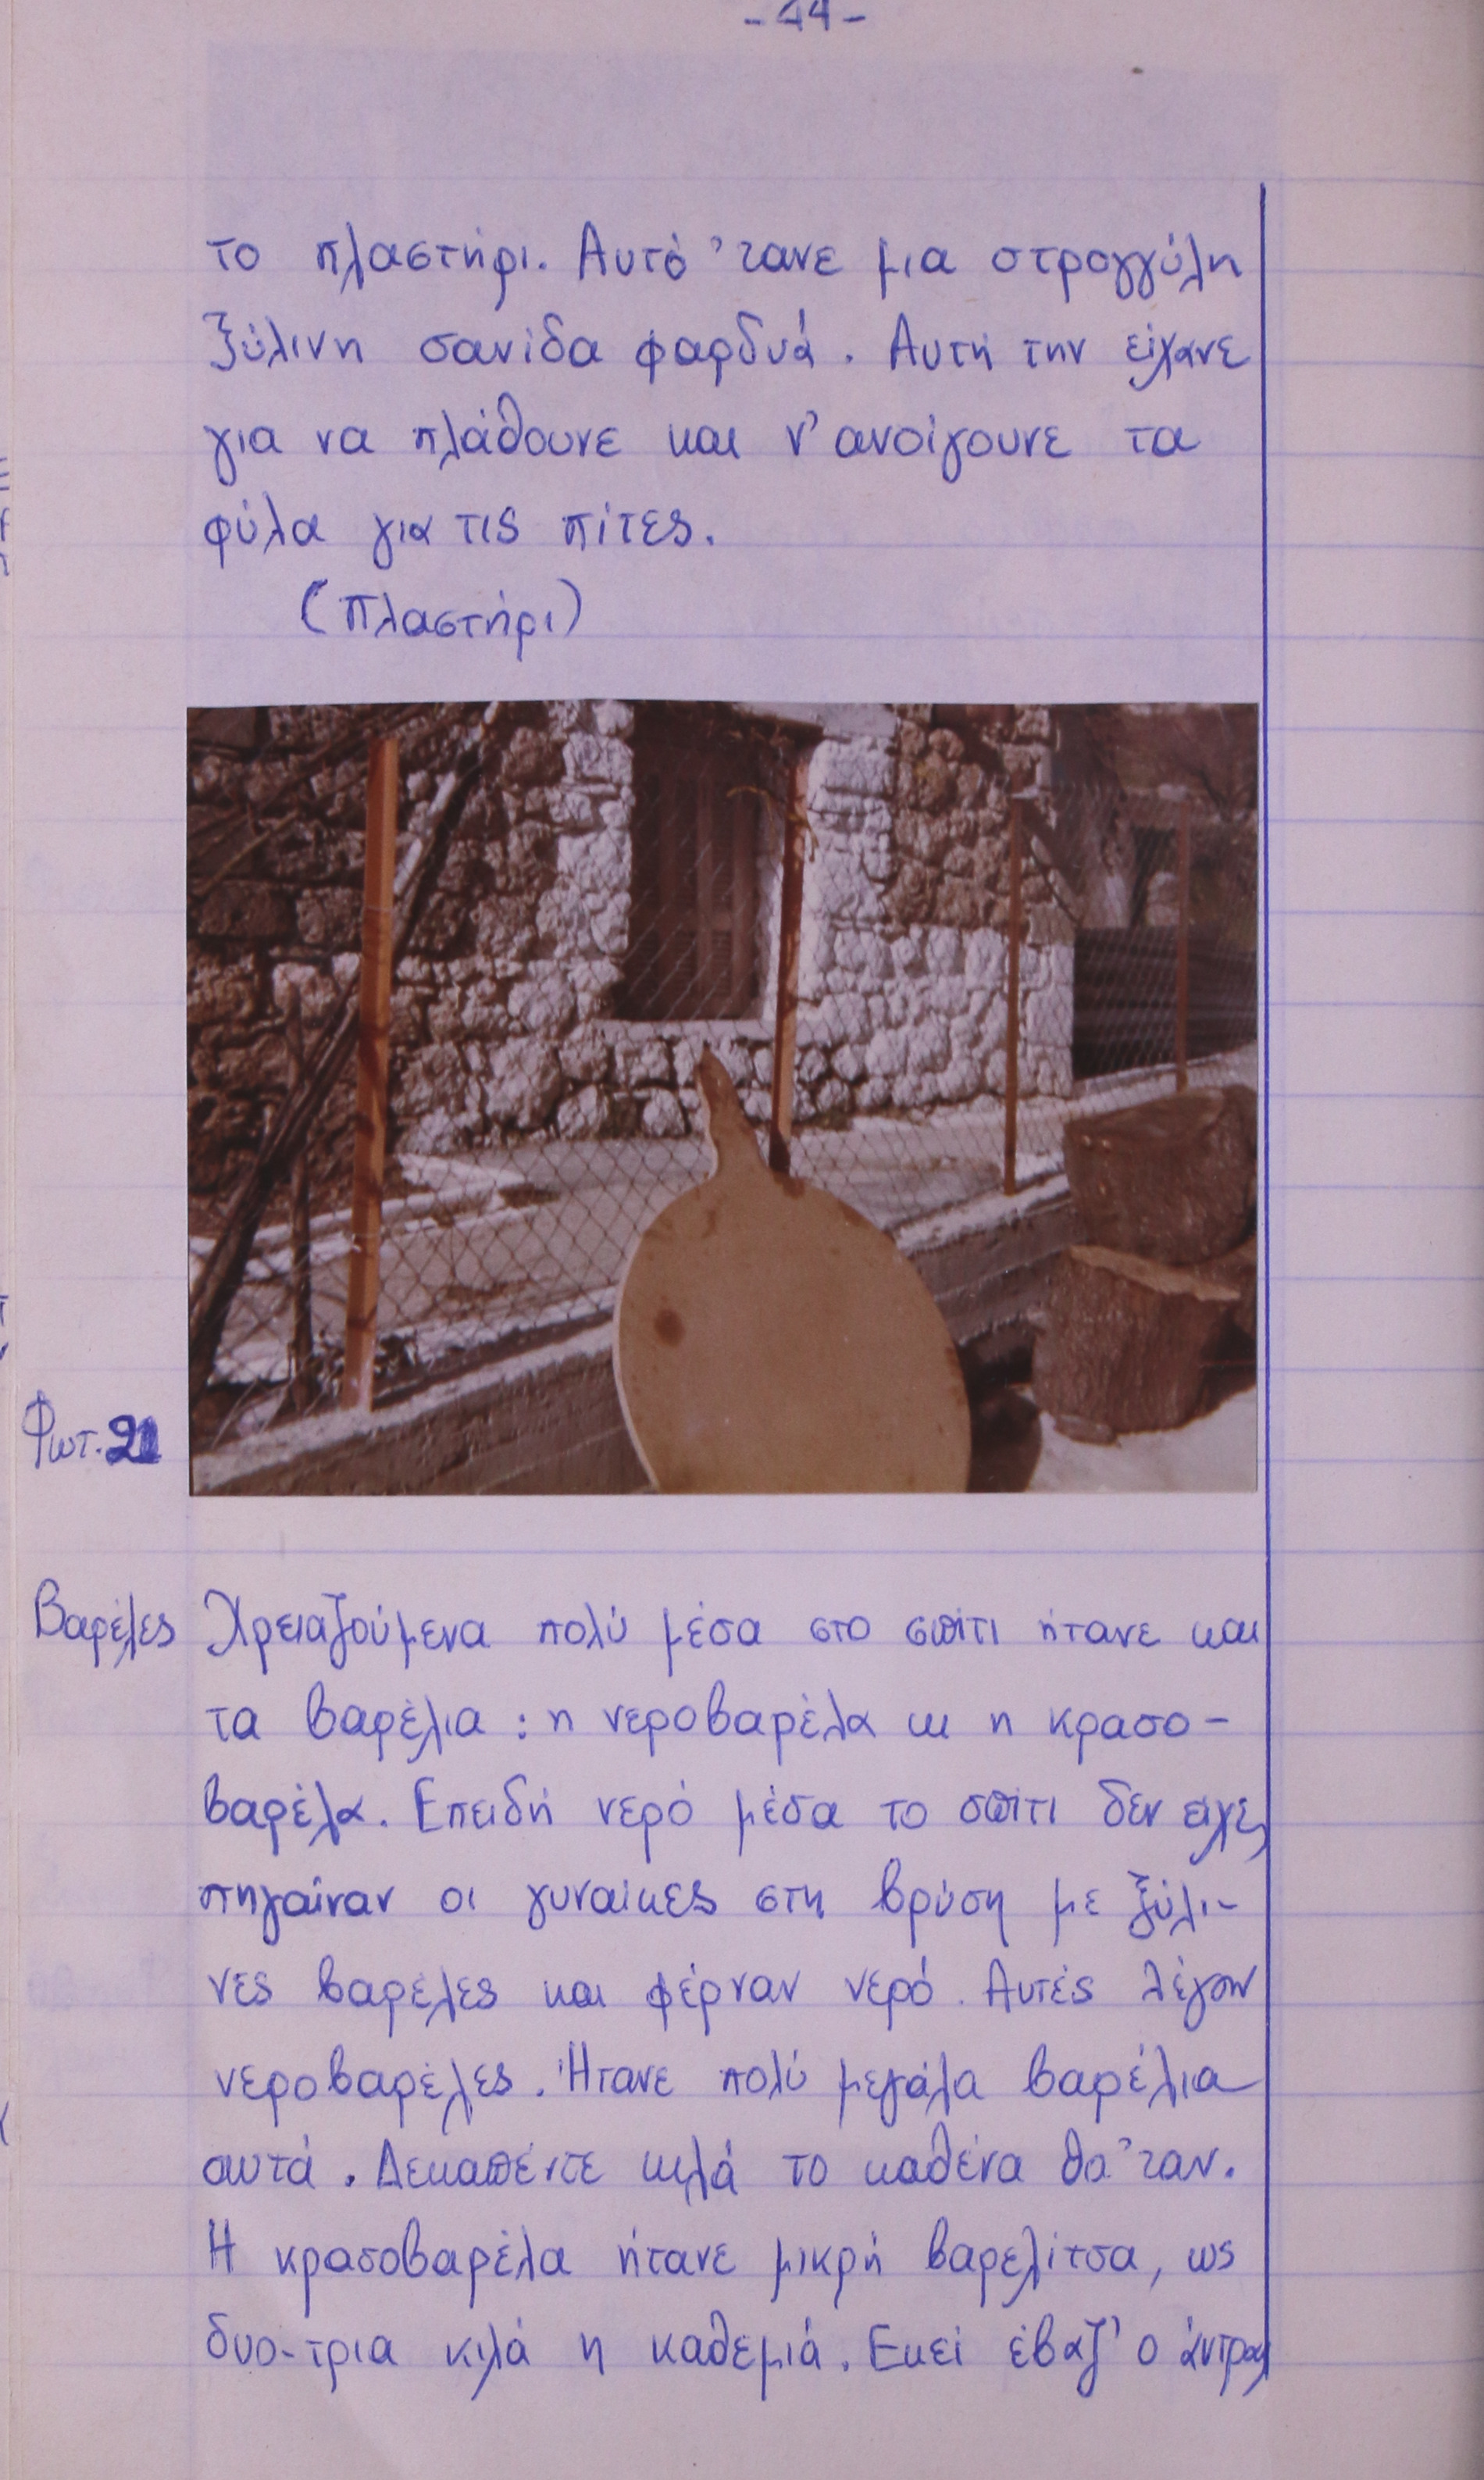 - 44 -
το πλαστήρι. Αυτό 'τανε μια στρογγύλη
ξύλινη σανίδα φαρδυά. Αυτή την είχανε
για να πλάθουνε και ν' ανοίγουνε τα
φύλα για τις πίτες.
(Πλαστήρι)
Φωτ. 21
Βαρέλες
Χρειαζούμενα πολύ μέσα στο σπίτι ήτανε και
τα βαρέλια : η νεροβαρέλα κι η κρασο-
βαρέλα. Επειδή νερό μέσα το σπίτι δεν είχε,
πηγαίναν οι γυναίκες στη βρύση με ξύλι-
νες βαρέλες και φέρναν νερό. Αυτές λέγαν
νεροβαρέλες. Ήτανε πολύ μεγάλα βαρέλια
αυτά. Δεκαπέντε κιλά το καθένα θα 'ταν.
Η κρασοβαρέλα ήτανε μικρή βαρελίτσα, ως
δυο-τρια κιλά η καθεμιά. Εκεί έβαζ' ο άντρας